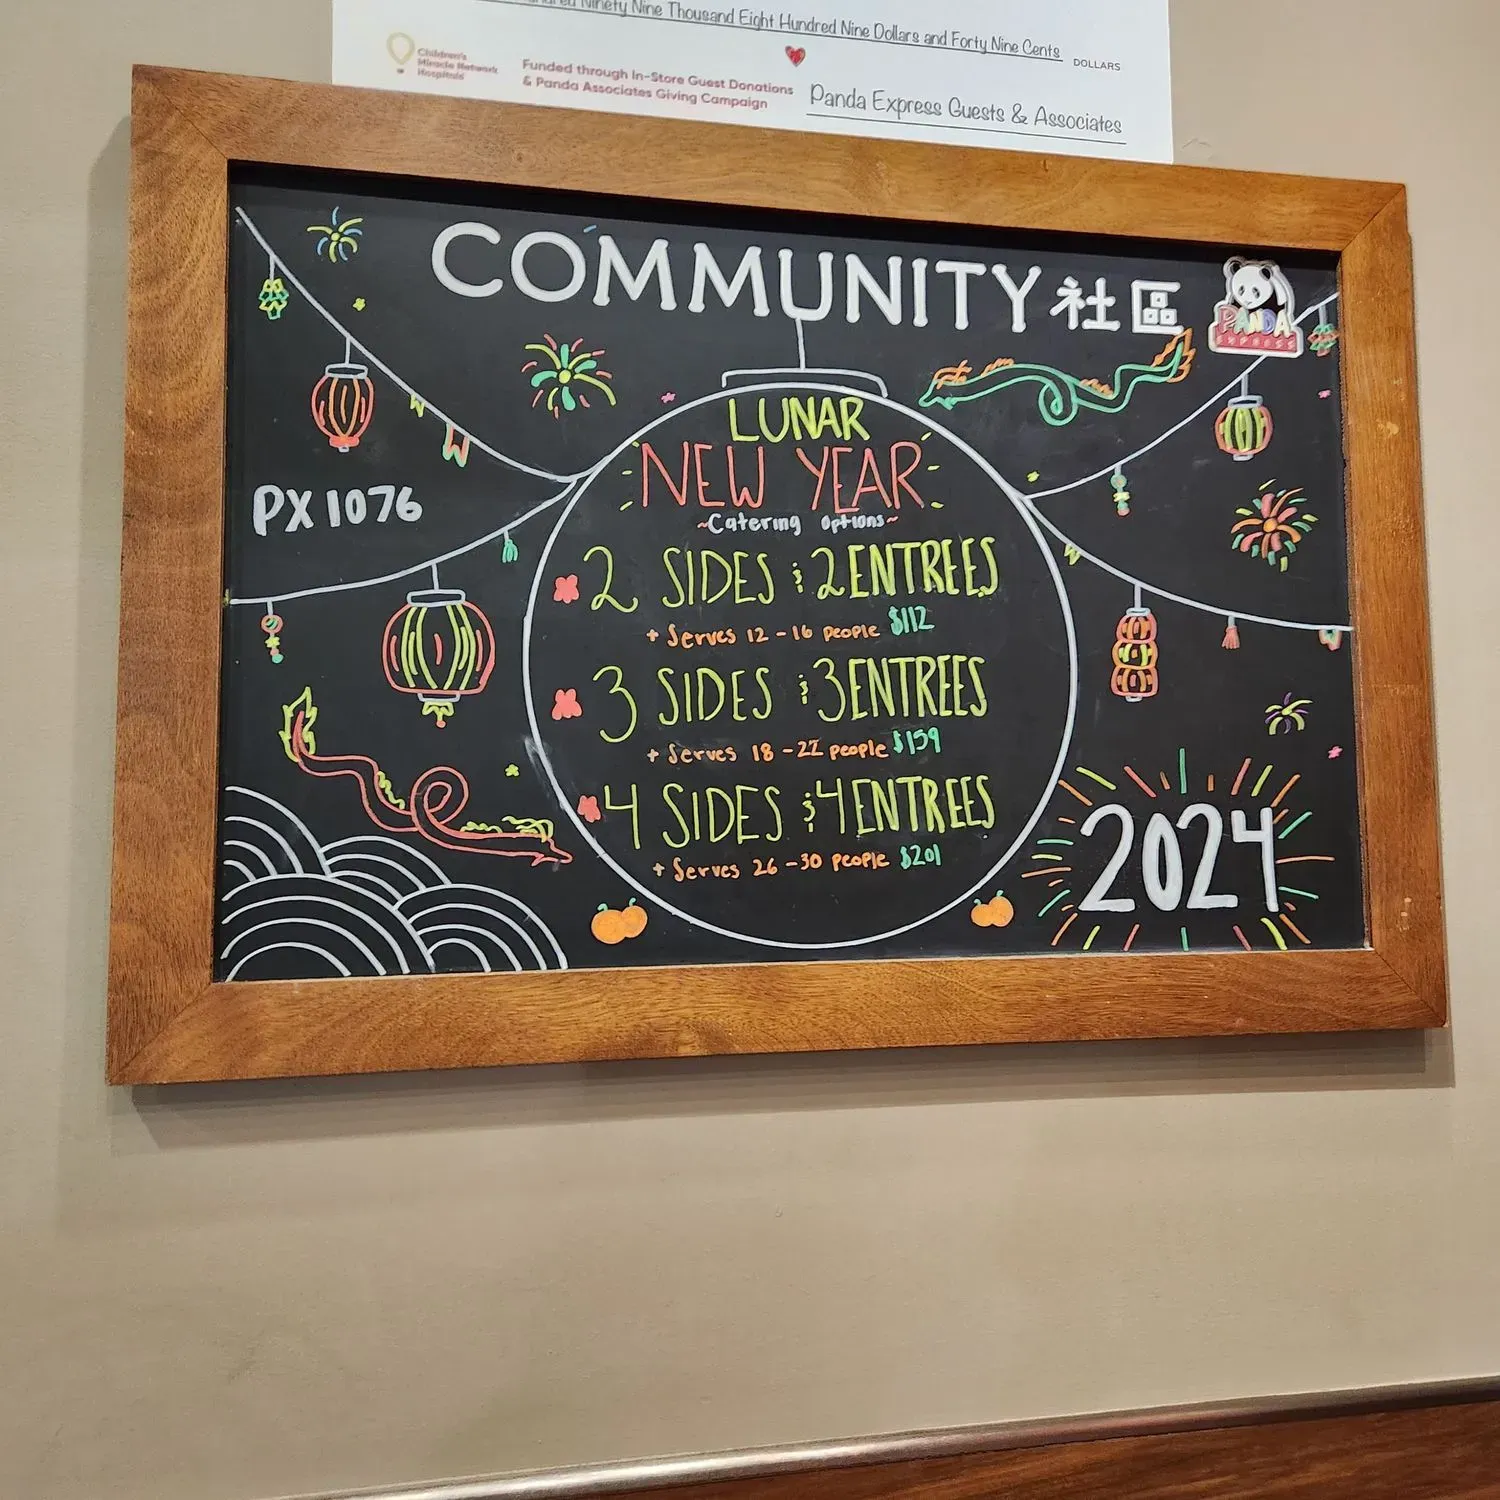 Ninety Nine Thousand Eight Hundred Nine Dollars and Forty Nine Cents DOLLARS
Children's
Miracle Network
Hospitals
Funded through In-Store Guest Donations
& Panda Associates Giving Campaign
Panda Express Guests & Associates
COMMUNITY 社區
PANDA
EXPRESS
PX 1076
LUNAR
NEW YEAR
~Catering Options~
2 SIDES & 2 ENTREES
+ Serves 12 - 16 people $112
3 SIDES & 3 ENTREES
+ Serves 18 - 22 people $159
4 SIDES & 4 ENTREES
+ Serves 26 - 30 people $201
2024